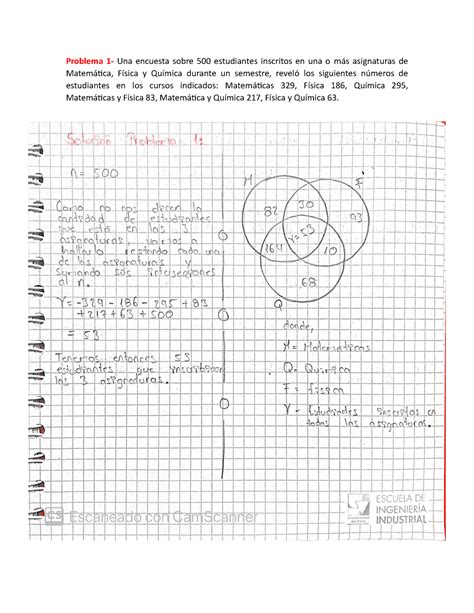 Problema 1- Una encuesta sobre 500 estudiantes inscritos en una o más asignaturas de
Matemática, Física y Química durante un semestre, reveló los siguientes números de
estudiantes en los cursos indicados: Matemáticas 329, Física 186, Química 295,
Matemáticas y Física 83, Matemática y Química 217, Física y Química 63.
Solución Problema 1:
n = 500
Como no nos dicen la
cantidad de estudiantes
que está en las 3
asignaturas, vamos a
hallarlo restando cada una
de las asignaturas y
sumando sus intersecciones
al n.
Y = -329 - 186 - 295 + 83
+ 217 + 63 + 500
= 53
Tenemos entonces 53
estudiantes que inscribieron
las 3 asignaturas.
M
F
82
30
93
Y=53
164
10
68
Q
donde,
M = Matemáticas
Q = Química
F = Física
Y = Estudiantes inscritos en
todas las asignaturas.
CS Escaneado con CamScanner
ESCUELA DE
INGENIERÍA
INDUSTRIAL